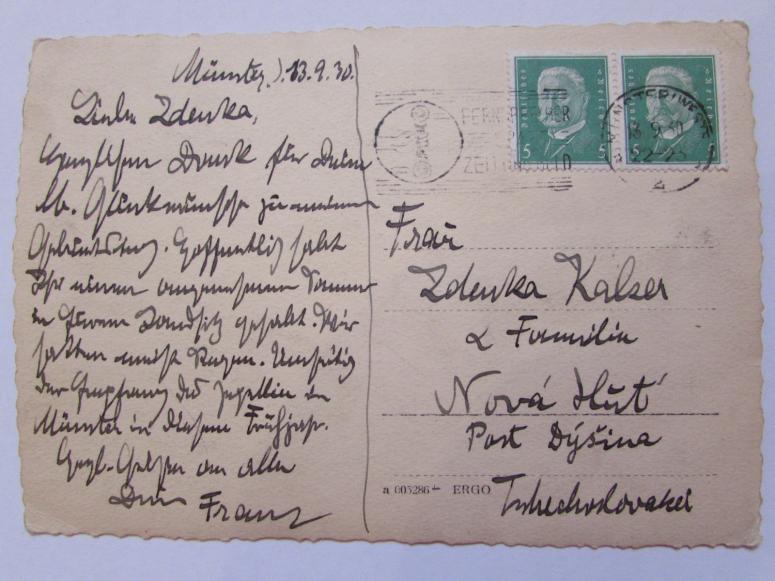 Münster, 13.9.30.
Liebe Zdenka,
Herzlichen Dank für Deine
lb. Glückwünsche zu meinem
Geburtstag. Hoffentlich habt
Ihr einen angenehmen Sommer
in Eurem Landsitz gehabt. Wir
hatten meist Regen. Umseitig
der Empfang des Zeppelin in
Münster in diesem Frühjahr.
Herzl. Grüßen an alle
Dein
Franz
DEUTSCHES REICH
5 5
DEUTSCHES REICH
5 5
FERNSPRECHER
ZEIT UND GELD
MÜNSTER (WESTF)
13.9.30
22-23
2
Frau
Zdenka Kalser
& Familie
Nová Huť
Post Dýšina
Tschechoslovakei
a 005286 ERGO